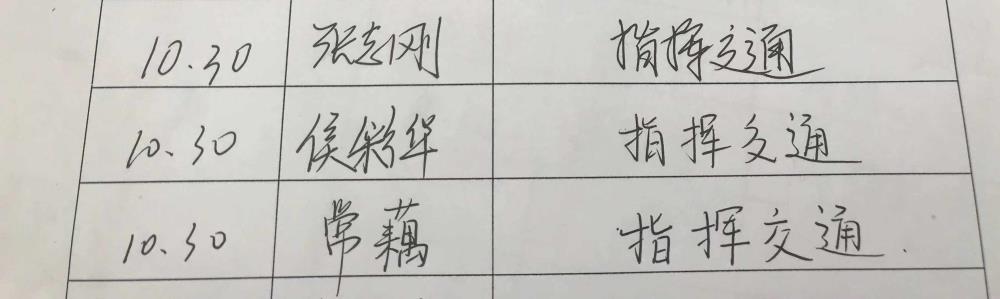 10.30 张志刚 指挥交通
10.30 侯彩华 指挥交通
10.30 常藕 指挥交通.